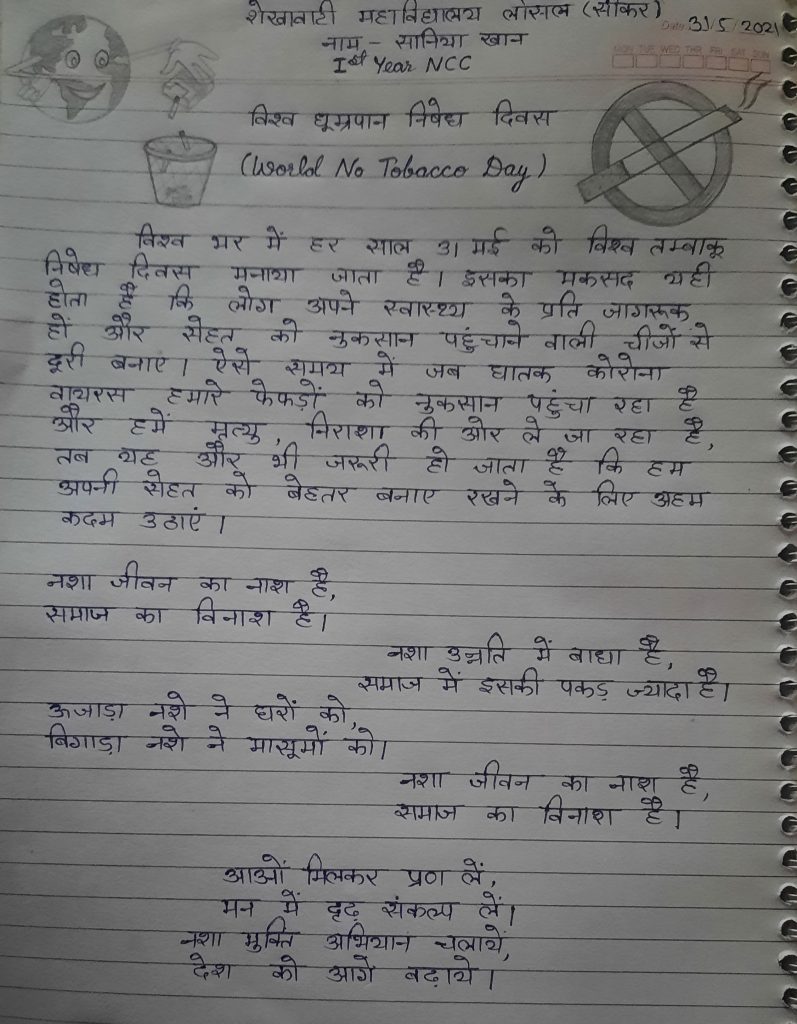 शेखावाटी महाविद्यालय लोसल (सीकर)
Date 31/5/2021
नाम - सानिया खान
Ist Year NCC
MON TUE WED THR FRI SAT SUN
विश्व धूम्रपान निषेध दिवस
(World No Tobacco Day)
विश्व भर में हर साल 31 मई को विश्व तम्बाकू
निषेध दिवस मनाया जाता है। इसका मकसद यही
होता है कि लोग अपने स्वास्थ्य के प्रति जागरूक
हों और सेहत को नुकसान पहुंचाने वाली चीजों से
दूरी बनाएं। ऐसे समय में जब घातक कोरोना
वायरस हमारे फेफड़ों को नुकसान पहुंचा रहा है
और हमें मृत्यु, निराशा की ओर ले जा रहा है,
तब यह और भी जरूरी हो जाता है कि हम
अपनी सेहत को बेहतर बनाए रखने के लिए अहम
कदम उठाएं।
नशा जीवन का नाश है,
समाज का विनाश है।
नशा उन्नति में बाधा है,
समाज में इसकी पकड़ ज्यादा है।
ऊजाड़ा नशे ने घरों को,
बिगाड़ा नशे ने मासूमों को।
नशा जीवन का नाश है,
समाज का विनाश है।
आओं मिलकर प्रण लें,
मन में दृढ़ संकल्प लें।
नशा मुक्ति अभियान चलायें,
देश को आगे बढ़ाये।